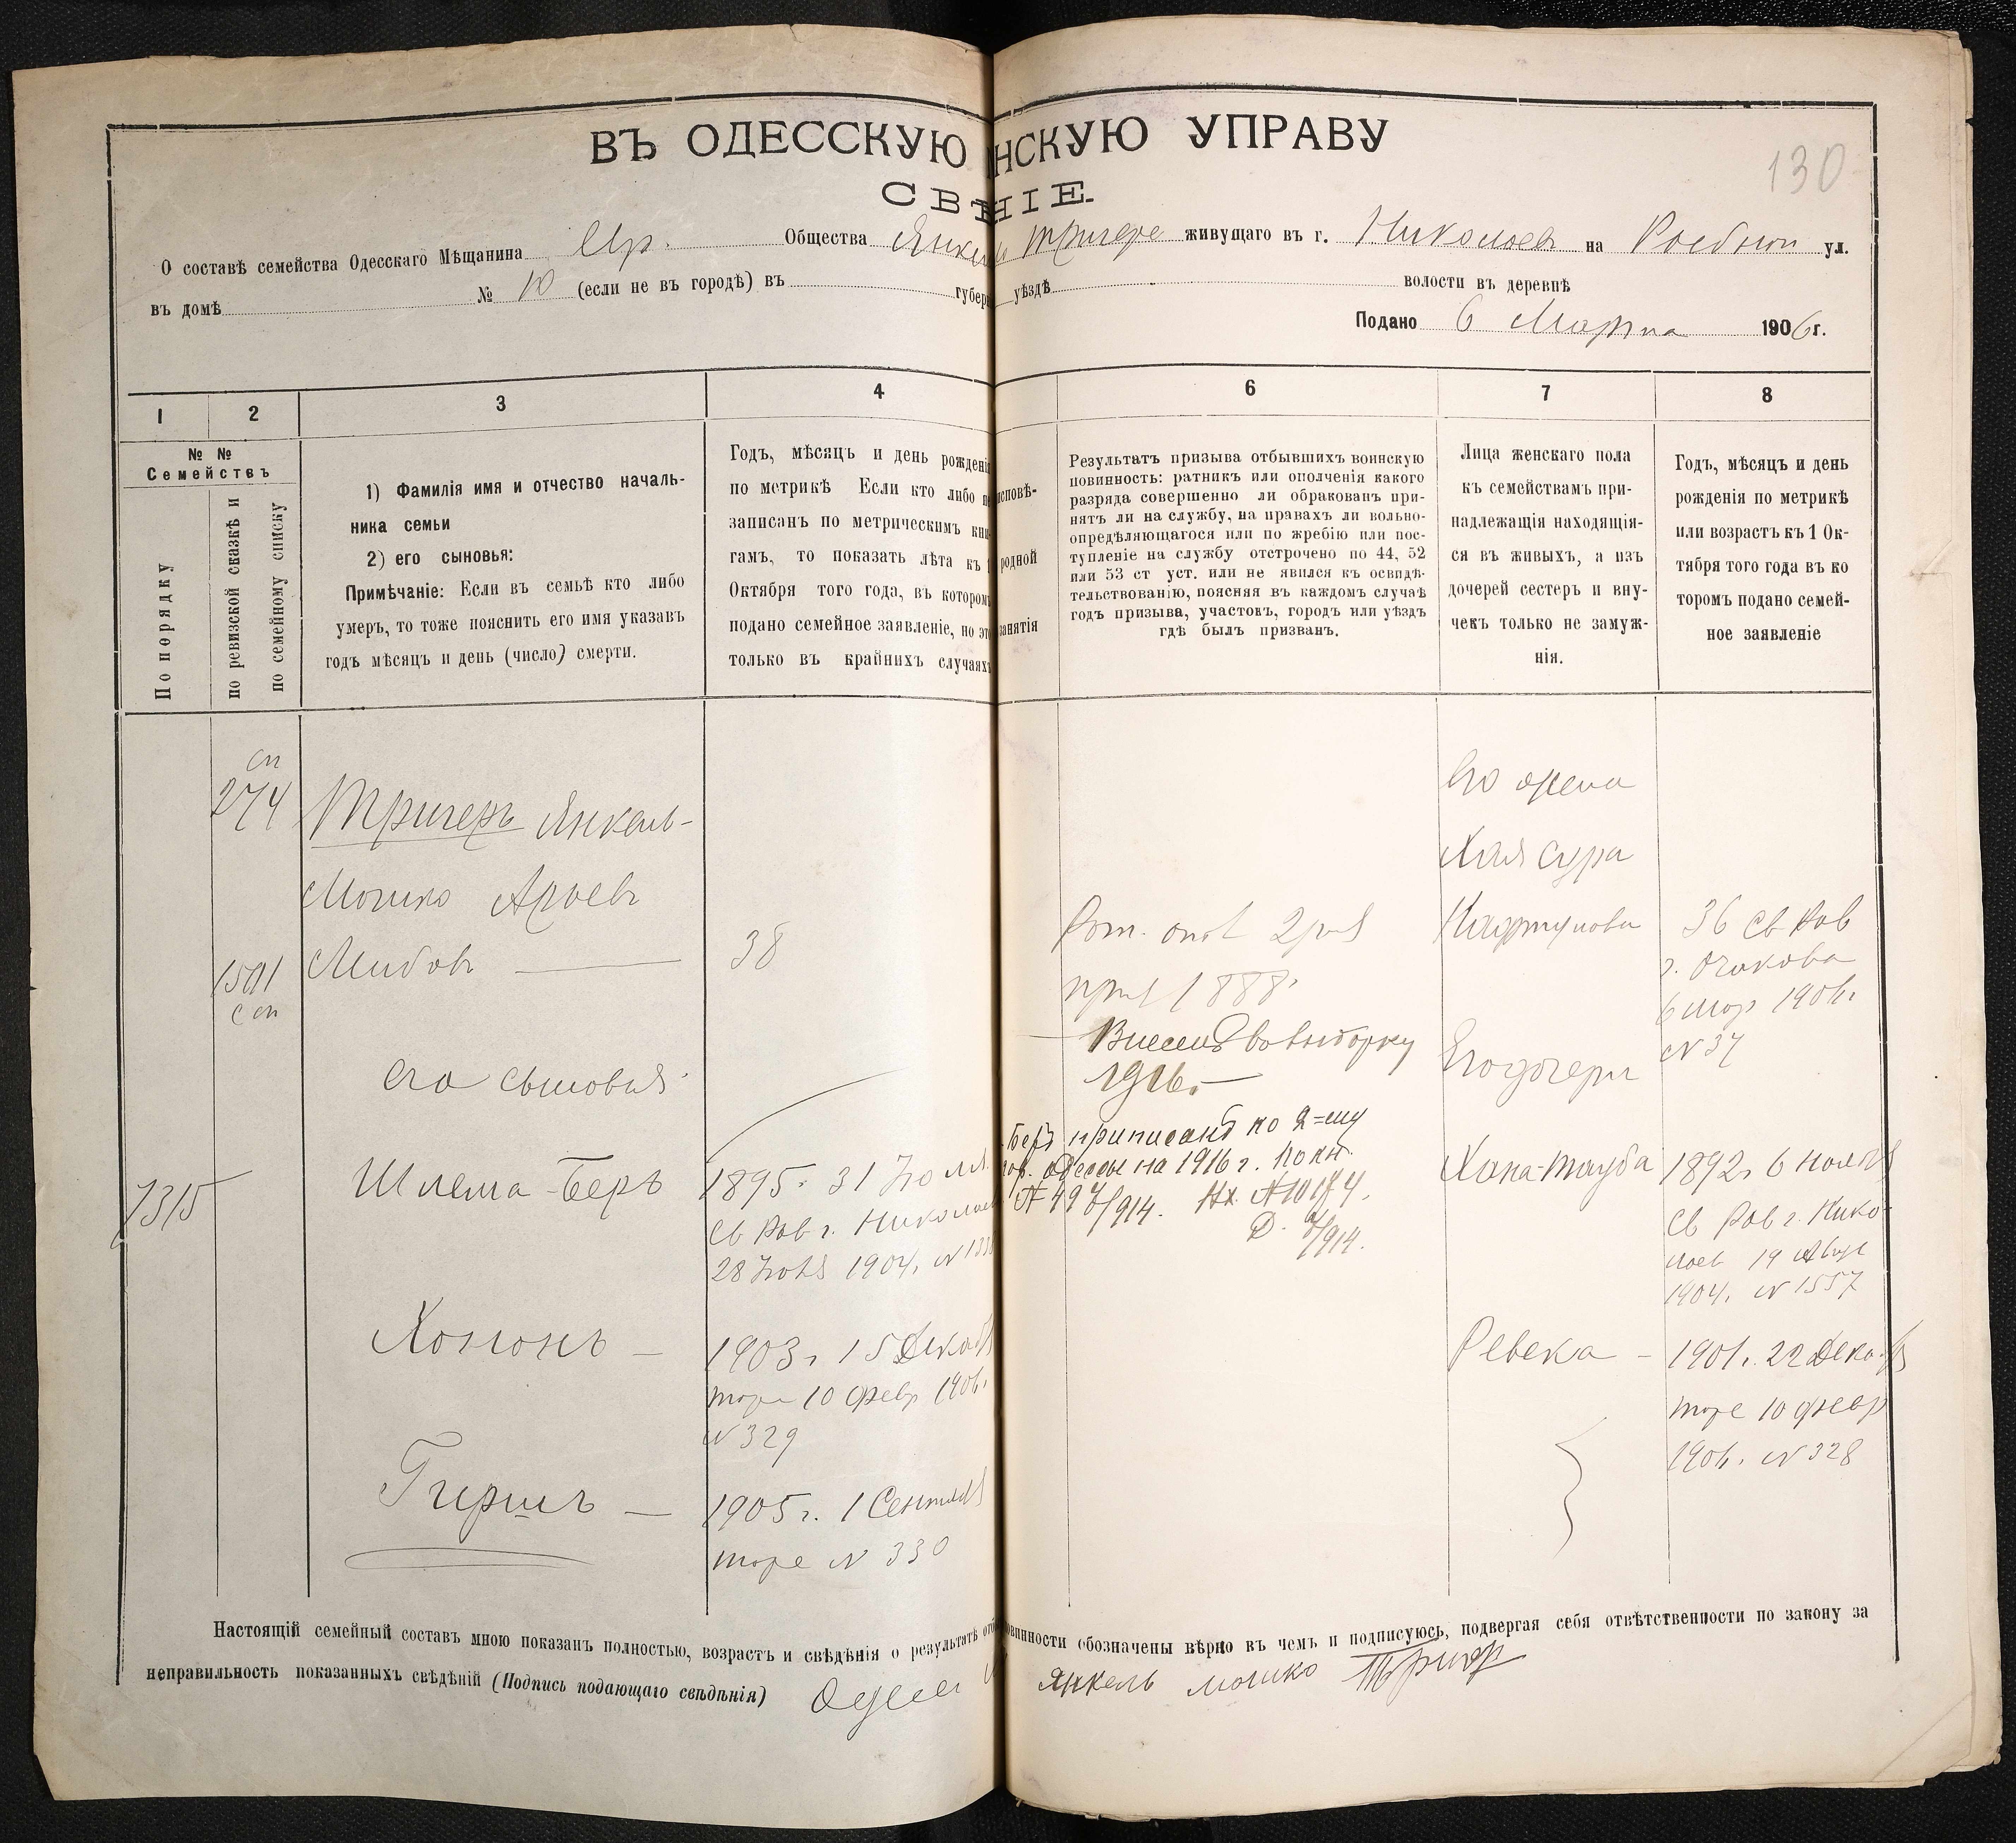 130
ВЪ ОДЕССКУЮ НСКУЮ УПРАВУ
СВѢНІЕ.
О составѣ семейства Одесскаго Мѣщанина Евр. Общества Янкеля Тригера живущаго въ г. Николаев на ул.
въ домѣ № 10 (если не въ городѣ) въ губер уѣздѣ волости въ деревнѣ
Подано 6 Марта 1906 г.
1 2 3 4 6 7 8
№ №
Семействъ
По порядку
по ревизской сказкѣ и
по семейному списку
1) Фамилія имя и отчество началь-
ника семьи
2) его сыновья:
Примѣчаніе: Если въ семьѣ кто либо
умеръ, то тоже пояснить его имя указавъ
годъ мѣсяцъ и день (число) смерти.
Годъ, мѣсяцъ и день рожденія
по метрикѣ Если кто либо не
записанъ по метрическимъ кни-
гамъ, то показать лѣта къ 1
Октября того года, въ которомъ
подано семейное заявленіе, но это
только въ крайнихъ случаяхъ
исповѣ-
родной
занятія
Результатъ призыва отбывшихъ воинскую
повинность: ратникъ или ополченія какого
разряда совершенно ли обракованъ при-
нятъ ли на службу, на правахъ ли вольно-
опредѣляющагося или по жребію или пос-
тупленіе на службу отстрочено по 44, 52
или 53 ст уст. или не явился къ освидѣ-
тельствованію, поясняя въ каждомъ случаѣ
годъ призыва, участокъ, городъ или уѣздъ
гдѣ былъ призванъ.
Лица женскаго пола
къ семействамъ при-
надлежащія находящія-
ся въ живыхъ, а изъ
дочерей сестеръ и вну-
чекъ только не замуж-
нія.
Годъ, мѣсяцъ и день
рожденія по метрикѣ
или возрастъ къ 1 Ок-
тября того года въ ко
торомъ подано семей-
ное заявленіе
сп
274
Тригеръ Янкель-
Мошко Арьев
Лейбов
1501
с сп
38
Рат. опол 2 раз
приз 1888г
Внесенъ во выборку
1916г.
Его жена
Хая Сура
Нафтулова
36 Св Рав
г. Очакова
6 мар 1906г
№ 37
Его сыновья
Его дочери
7315
Шлема-Беръ
1895г 31 Іюля
Св Рав г. Николаев
28 Іюня 1904г №
Беръ приписанъ ко 2=му
гор. Одессы на 1916 г. по кн.
№ 497/914. Вх. №
Д. /914.
Хана-Тауба
1892г 6 Ноябя
Св Рав г. Нико-
лаев 19 Авгус
1904г. № 1557
Хононъ —
1903г 15 Декаб
10 Февр 1906г
№ 329
Ревека —
1901г. 22 Декабя
10 февр
1906г. № 328
Гиршъ —
1905 г. 1 Сентяб
№ 330
Настоящій семейный составъ мною показанъ полностью, возрастъ и свѣдѣнія о результатѣ отб овинности обозначены вѣрно въ чемъ и подписуюсь, подвергая себя отвѣтственности по закону за
неправильность показанныхъ свѣдѣній (Подпись подающаго свѣдѣнія) Одеси Янкель мошко Тригер